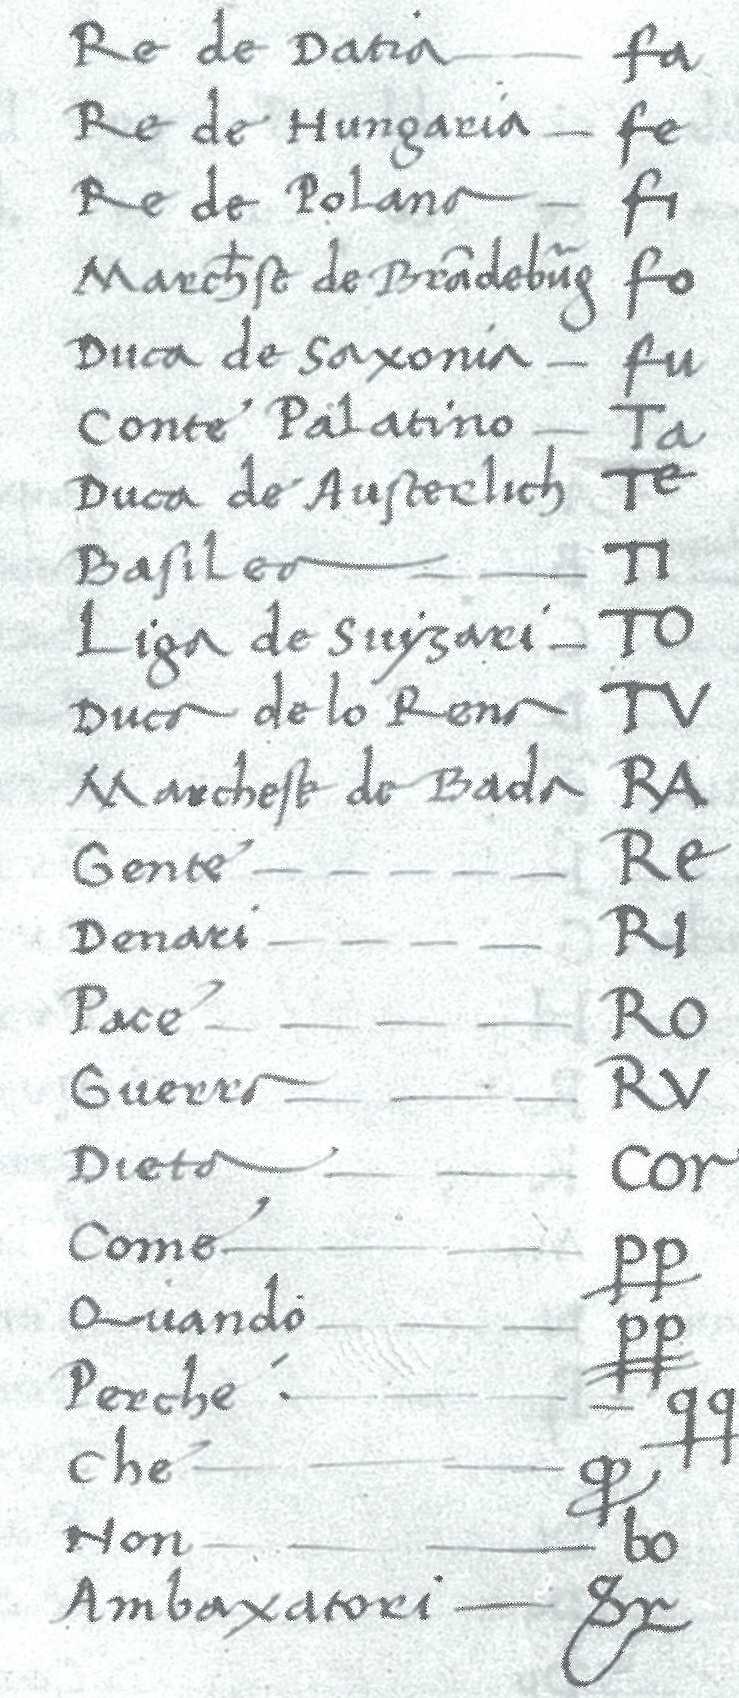 Re de Datia fa
Re de Hungaria fe
Re de Polana fi
Marchſe de Brãdebũg fo
Duca de Saxonia fu
Conte Palatino Ta
Duca de Auſterlich Te
Baſileo TI
Liga de Suijzari TO
Duca de lo Reno TV
Marcheſe de Bada RA
Gente Re
Denari RI
Pace RO
Guerra RV
Dieta Cor
Come pp
Quando pp
Perche qq
Che
Non bo
Ambaxatori